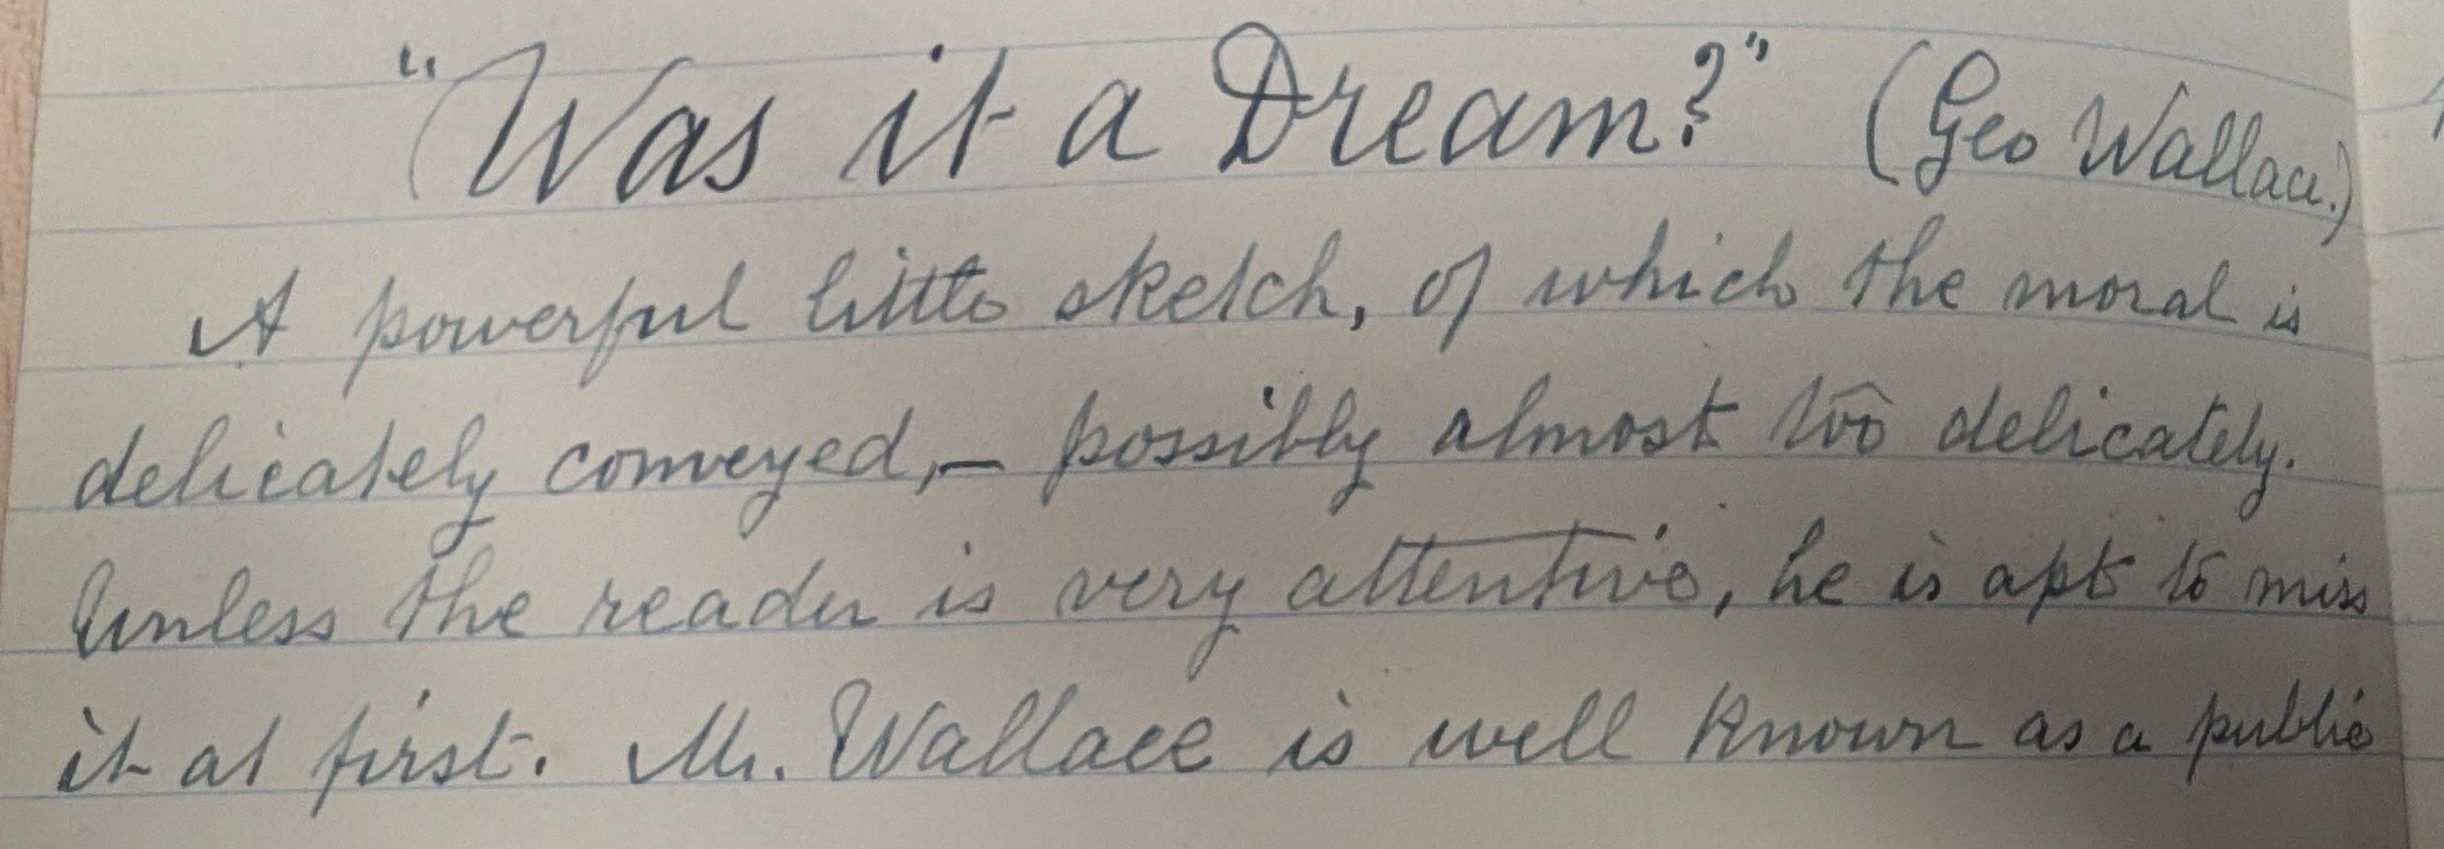 "Was it a Dream?" (Geo Wallace.)
A powerful little sketch, of which the moral is
delicately conveyed, – possibly almost too delicately.
Unless the reader is very attentive, he is apt to miss
it at first. Mr. Wallace is well known as a public